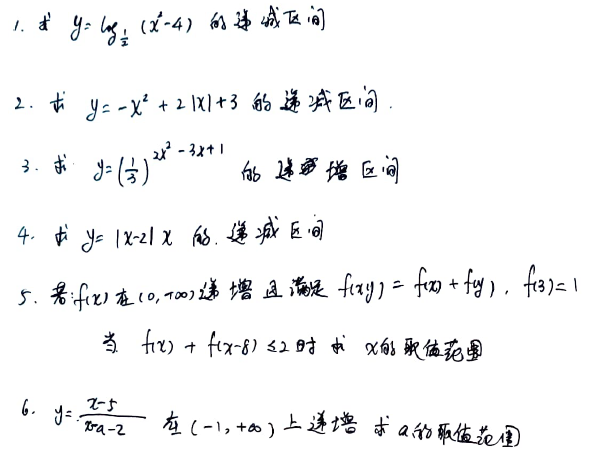 1. 求 y=log_{1/2} (x²-4) 的递减区间
2. 求 y=-x²+2|x|+3 的递减区间.
3. 求 y=(1/3)^{2x²-3x+1} 的递增区间
4. 求 y=|x-2|x 的递减区间
5. 若f(x)在(0,+∞)递增且满足f(xy)=f(x)+f(y),f(3)=1
当 f(x)+f(x-8)≤2时求 x的取值范围
6. y=\frac{x-5}{x-a-2} 在(-1,+∞)上递增 求a的取值范围